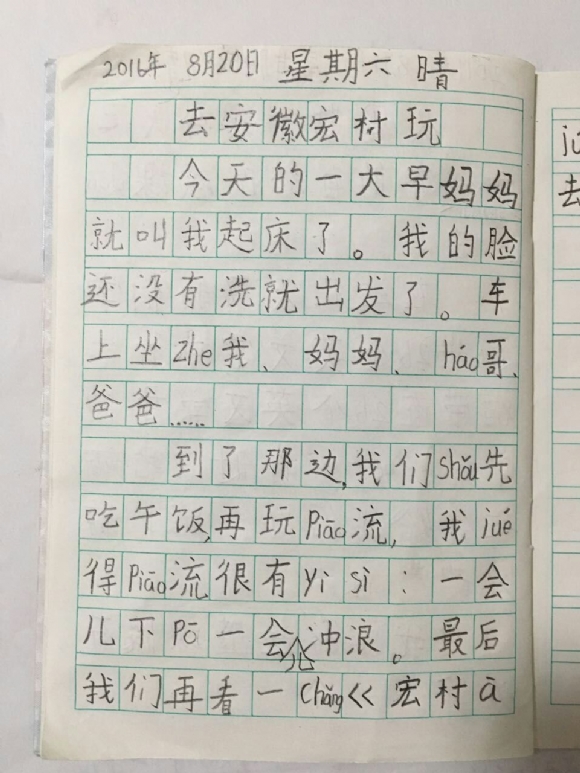 2016年 8月20日 星期六 晴
去安徽宏村玩
今天的一大早妈妈
就叫我起床了。我的脸
还没有洗就出发了。车
上坐zhe我、妈妈、háo哥、
爸爸……
到了那边,我们shǒu先
吃午饭,再玩Piāo流,我jué
得Piāo流很有yì sì:一会
儿下Pō一会儿冲浪。最后
我们再看一chǎng《宏村à
jú
去